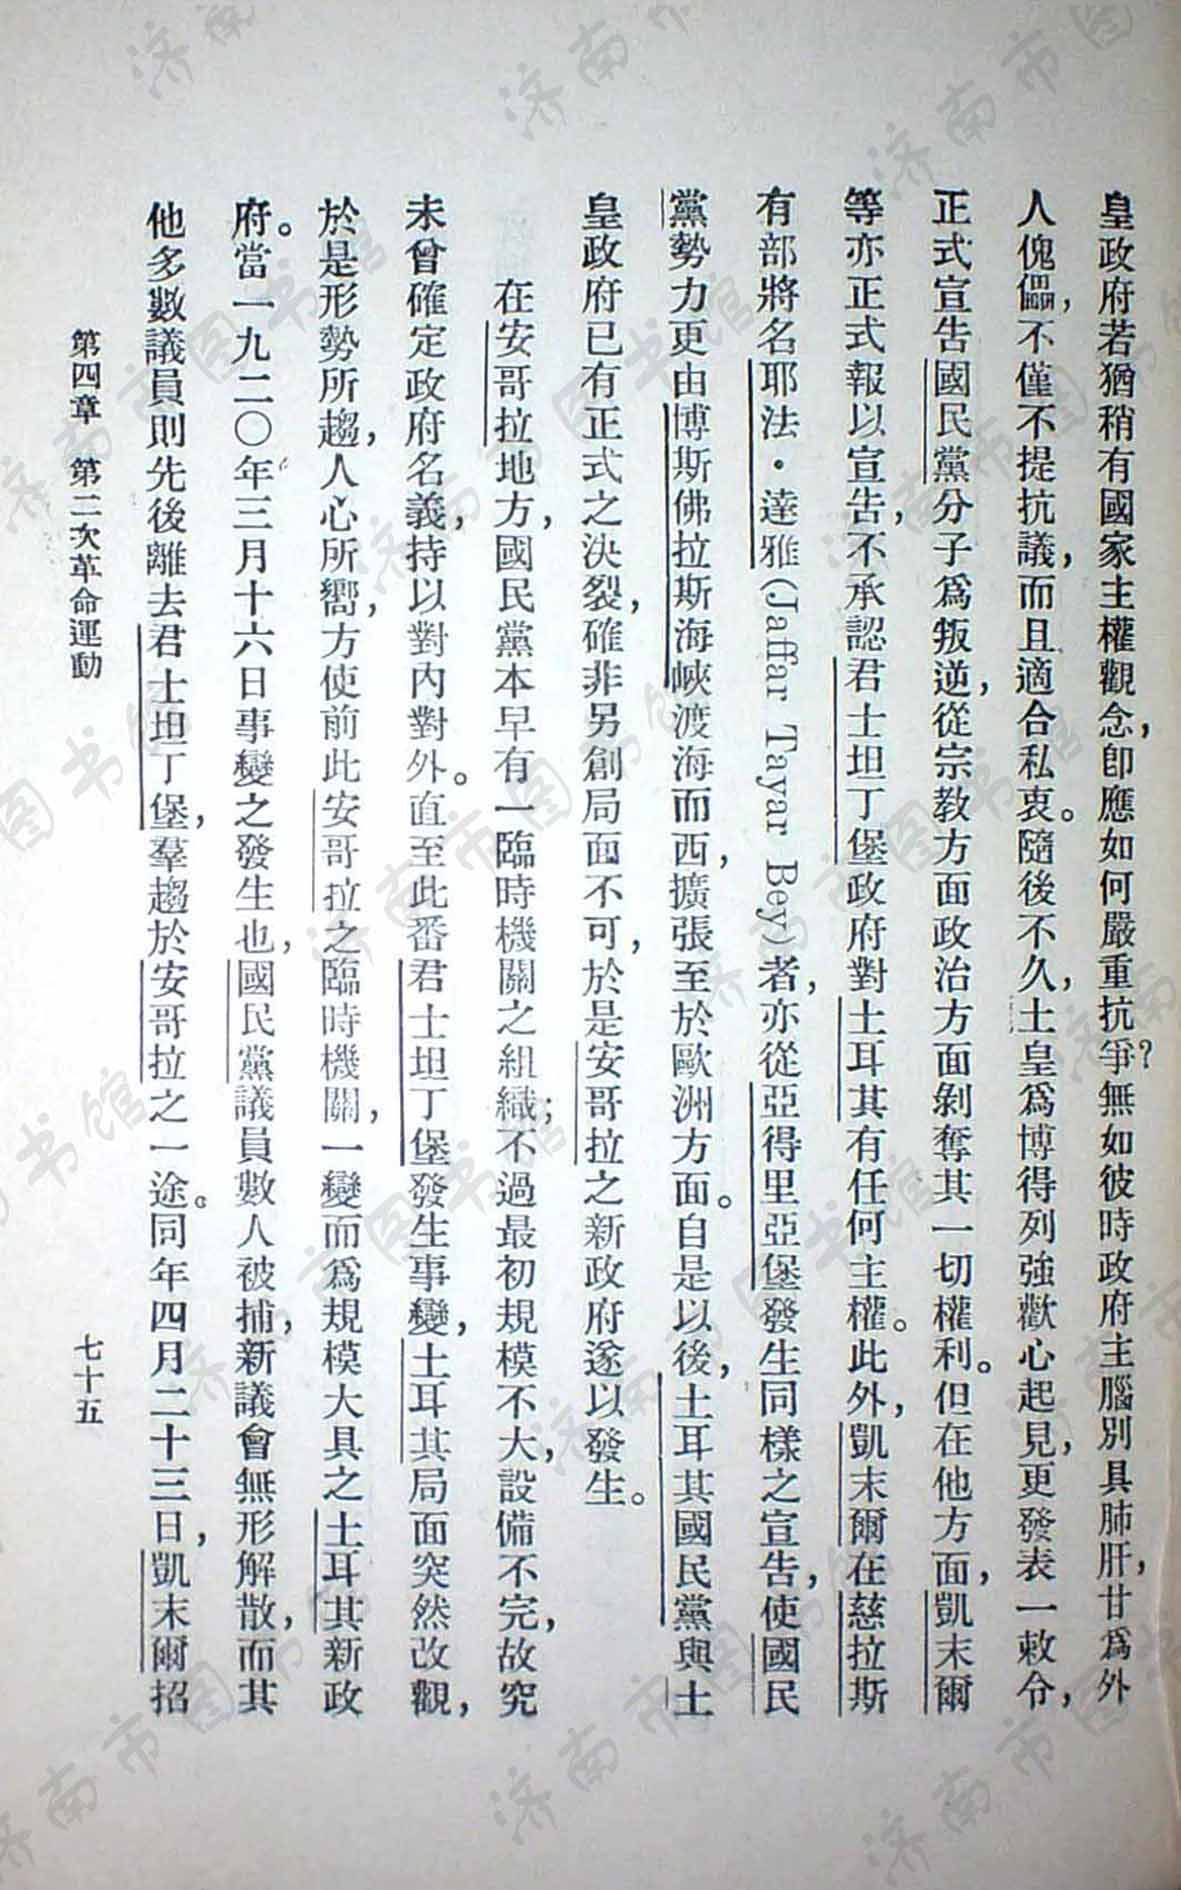 皇政府若猶稍有國家主權觀念，卽應如何嚴重抗爭？無如彼時政府主腦別具肺肝，甘爲外
人傀儡，不僅不提抗議，而且適合私衷。隨後不久，土皇爲博得列強歡心起見，更發表一敕令，
正式宣告國民黨分子爲叛逆，從宗教方面政治方面剝奪其一切權利。但在他方面，凱末爾
等亦正式報以宣告，不承認君士坦丁堡政府對土耳其有任何主權。此外，凱末爾在慈拉斯
有部將名耶法·達雅（Jaffar Tayar Bey）者，亦從亞得里亞堡發生同樣之宣告，使國民
黨勢力更由博斯佛拉斯海峽渡海而西，擴張至於歐洲方面。自是以後，土耳其國民黨與土
皇政府已有正式之決裂，確非另創局面不可，於是安哥拉之新政府遂以發生。
在安哥拉地方，國民黨本早有一臨時機關之組織；不過最初規模不大，設備不完，故究
未曾確定政府名義，持以對內對外。直至此番君士坦丁堡發生事變，土耳其局面突然改觀，
於是形勢所趨，人心所嚮，方使前此安哥拉之臨時機關，一變而爲規模大具之土耳其新政
府。當一九二〇年三月十六日事變之發生也，國民黨議員數人被捕，新議會無形解散，而其
他多數議員則先後離去君士坦丁堡，羣趨於安哥拉之一途。同年四月二十三日，凱末爾招
第四章 第二次革命運動 七十五
济南市图书馆